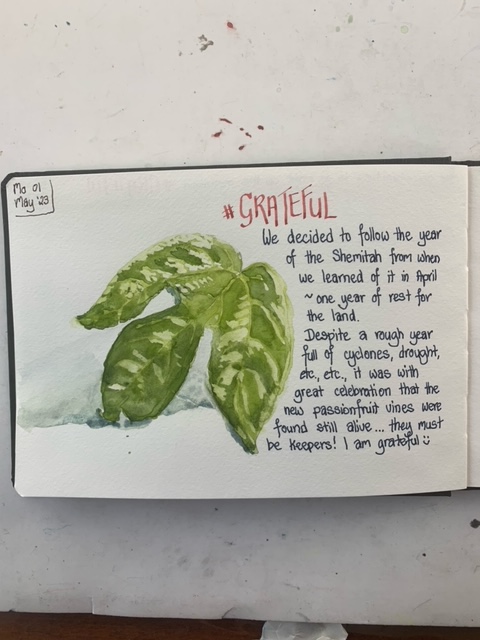 Mo 01
May '23
#GRATEFUL
We decided to follow the year
of the Shemitah from when
we learned of it in April
~one year of rest for
the land.
Despite a rough year
full of cyclones, drought,
etc., etc., it was with
great celebration that the
new passionfruit vines were
found still alive... they must
be keepers! I am grateful☺